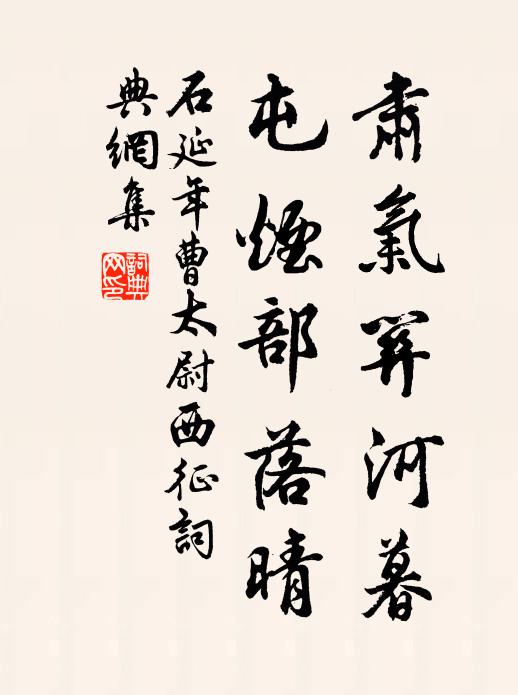 肅氣關河暮
屯煙部落晴
石延年曹太尉西征詞
典網集
詞典网印